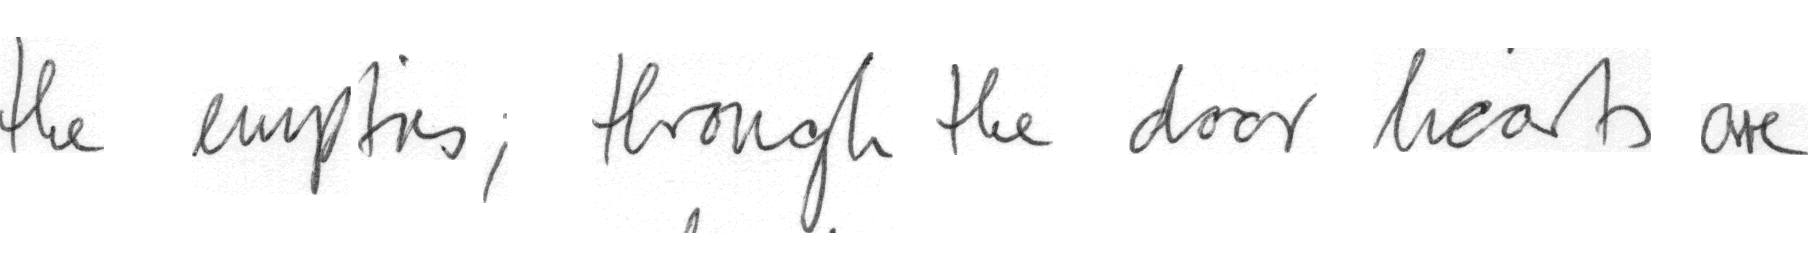 the empties; through the door hearts are